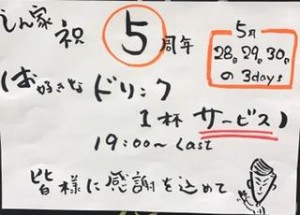 しん家 祝 5周年
5月
28。29。30。
の3days
(お好きな ドリンク
1杯 サービス)
19:00~Last
皆様に感謝を込めて